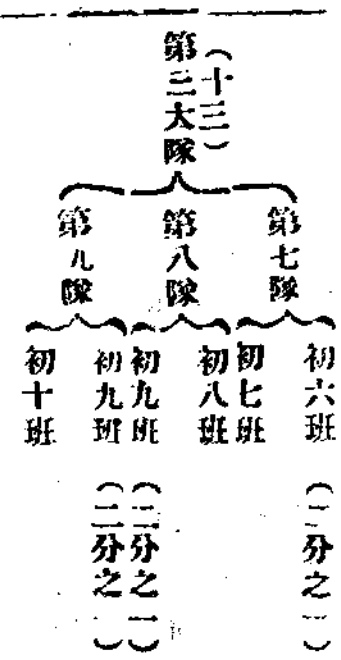 （十三）
第三大隊
第七隊
第八隊
第九隊
初六班（二分之一）
初七班
初八班
初九班（二分之一）
初九班（二分之一）
初十班